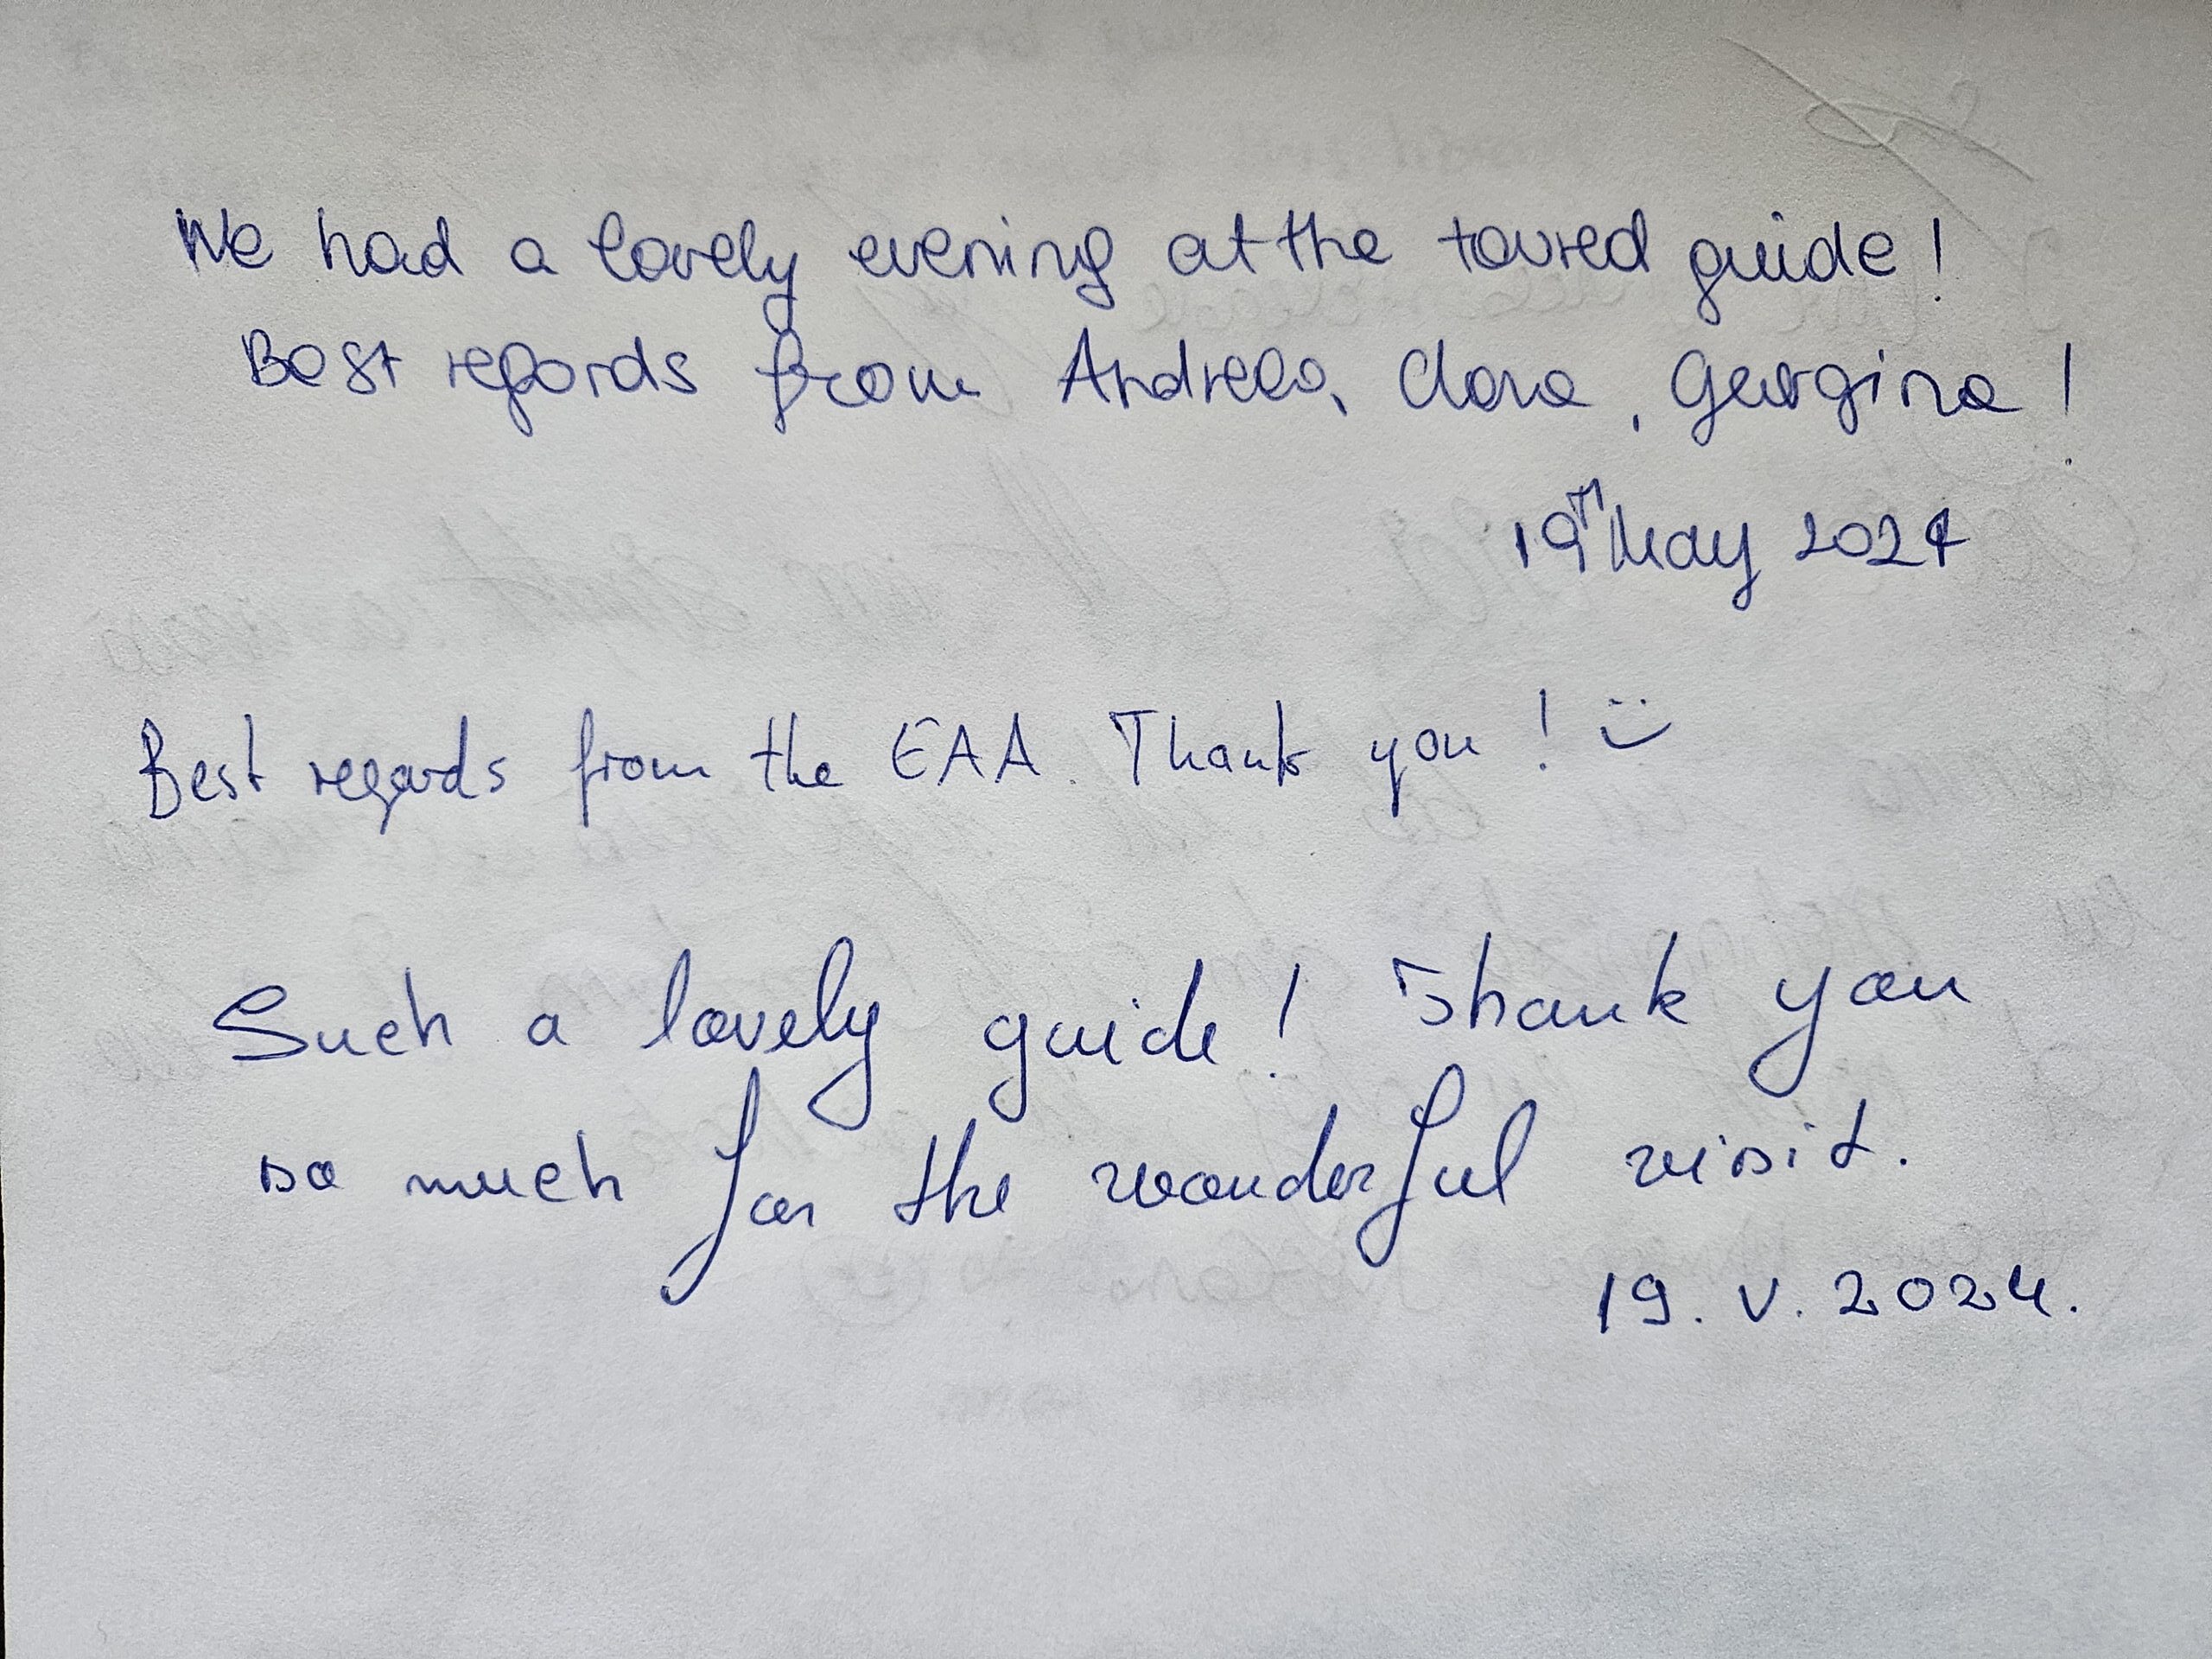 We had a lovely evening at the toured guide!
Best regards from Andreea, Clara, Georgina!
19TH May 2024
Best regards from the EAA. Thank you! :)
Such a lovely guide! Thank you
so much for the wonderful visit.
19. V. 2024.